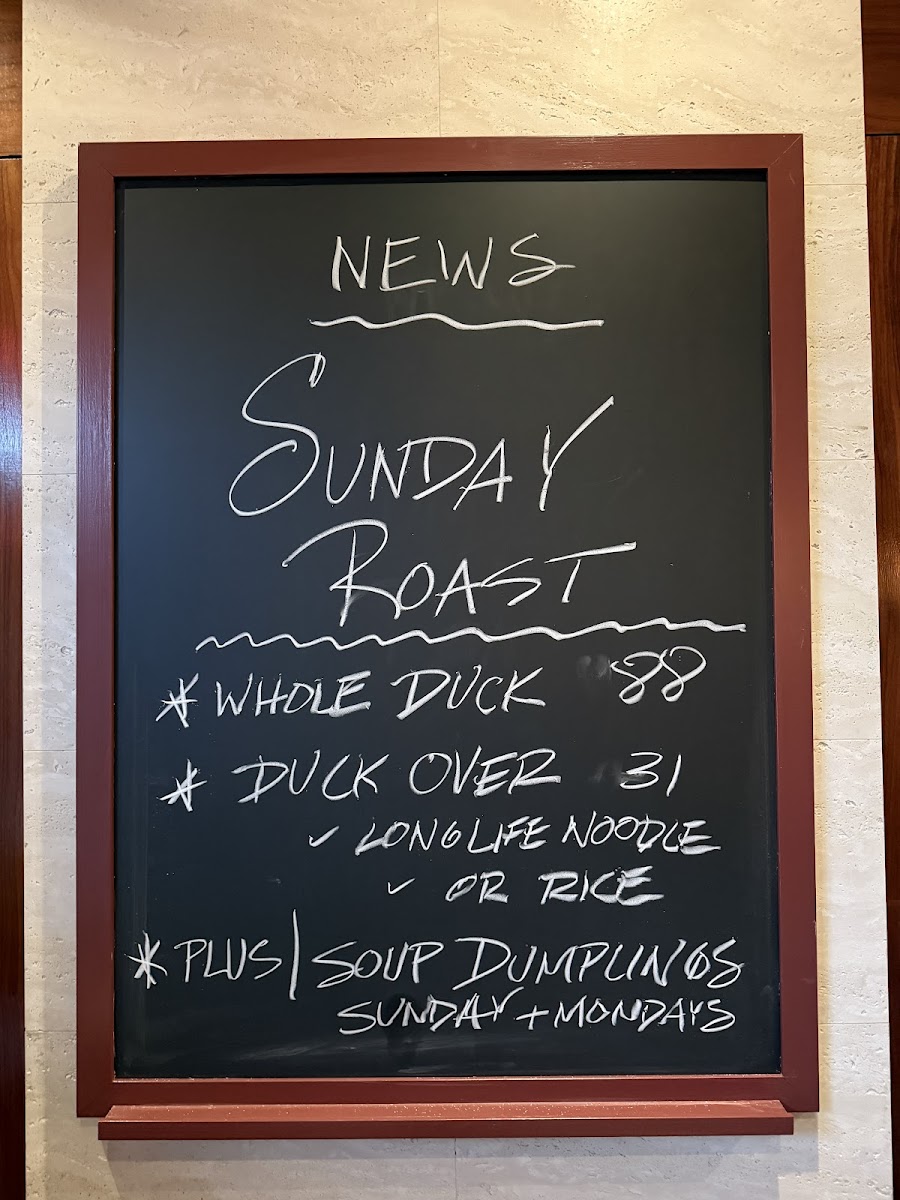 NEWS
SUNDAY
ROAST
* WHOLE DUCK 88
* DUCK OVER 31
✓ LONG LIFE NOODLE
✓ OR RICE
* PLUS | SOUP DUMPLINGS
SUNDAY + MONDAYS